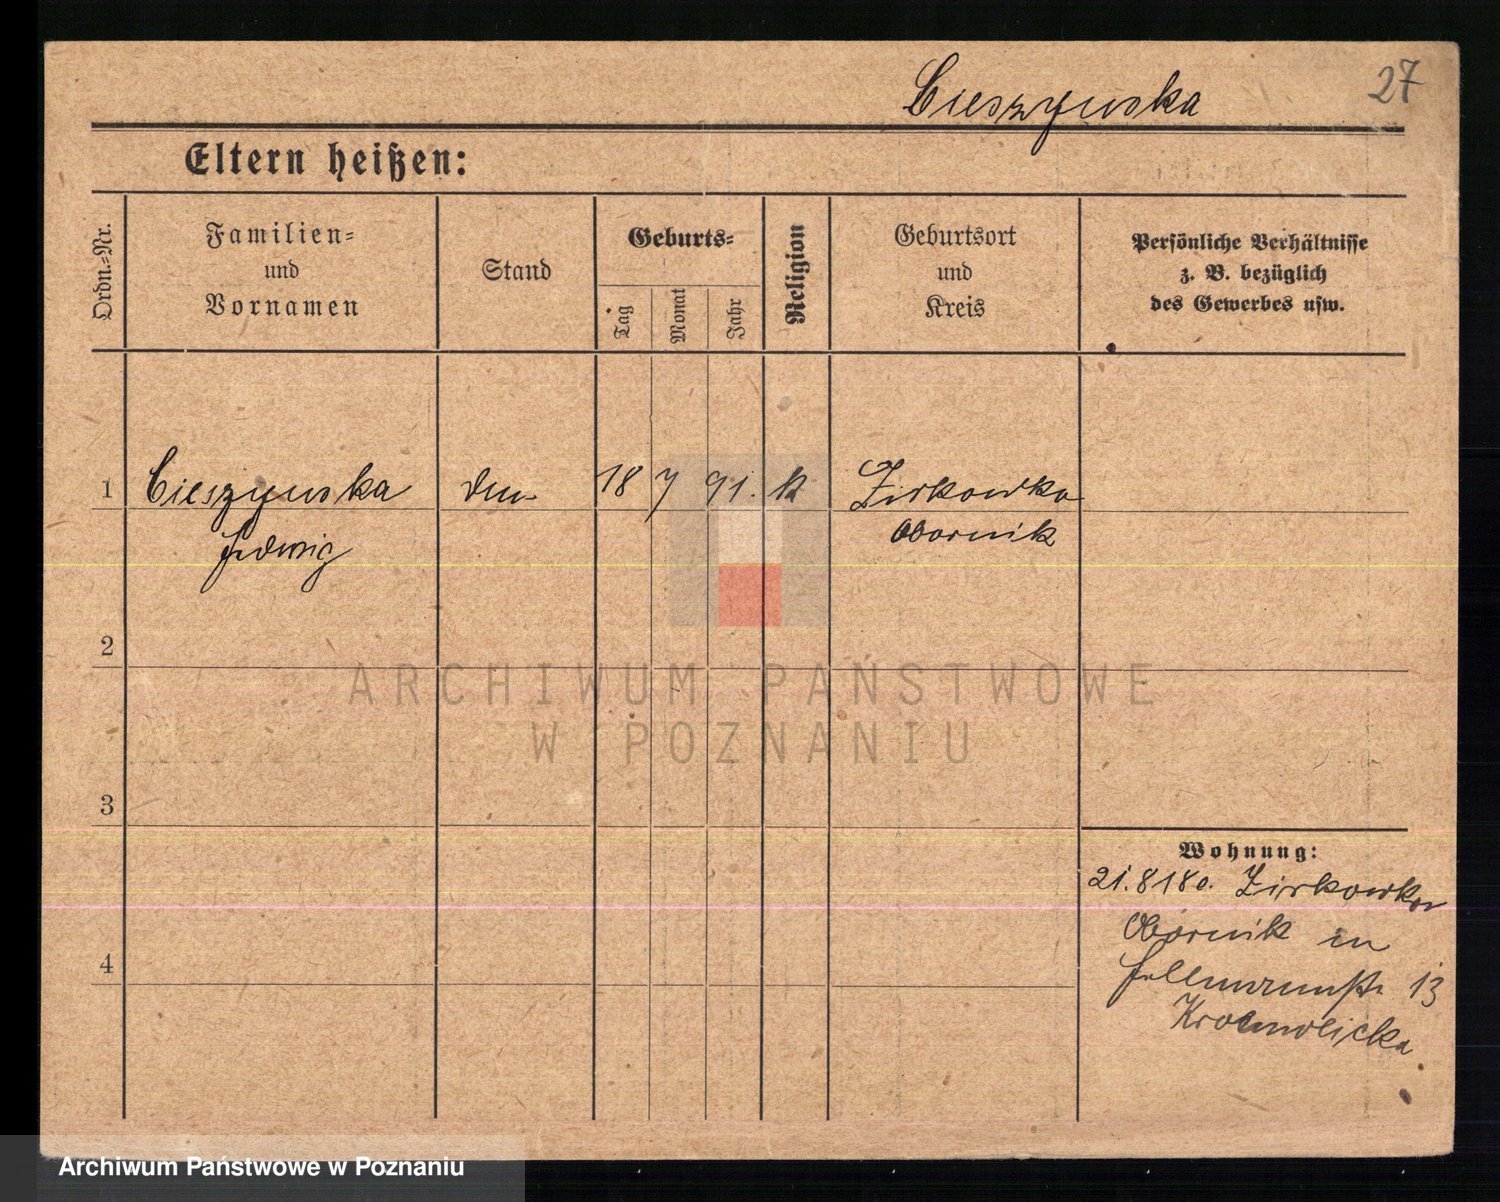 Cieszynska
27
Eltern heißen:
Ordn.-Nr.
Familien-
und
Vornamen
Stand
Geburts-
Tag
Monat
Jahr
Religion
Geburtsort
und
Kreis
Persönliche Verhältnisse
z. B. bezüglich
des Gewerbes usw.
1
Cieszynska
18
7
91.
k
Zirkowka
Hedwig
Obornik
2
3
Wohnung:
Zirkowka
Obornik in
13
4
ARCHIWUM PAŃSTWOWE
W POZNANIU
Archiwum Państwowe w Poznaniu